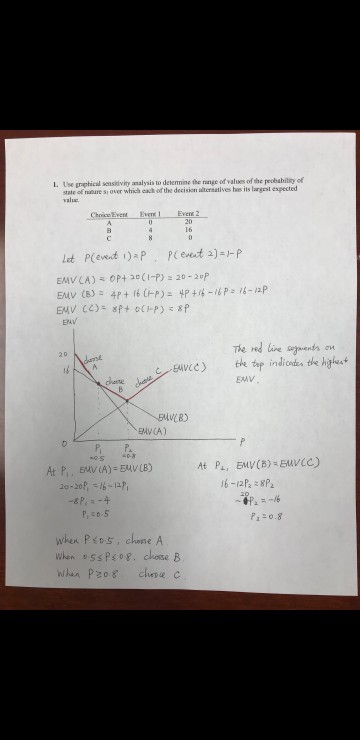 1. Use graphical sensitivity analysis to determine the range of values of the probability of
state of nature s₁ over which each of the decision alternatives has its largest expected
value.
Choice/Event Event 1 Event 2
A 0 20
B 4 16
C 8 0
Let P(event 1)=P. P(event 2)=1-P
EMV(A) = 0P+20(1-P) = 20-20P
EMV (B) = 4P+16(1-P) = 4P+16-16P = 16-12P
EMV (C) = 8P+0(1-P) = 8P
EMV
20
16
choose
A
choose
B
choose C
EMV(C)
EMV(B)
EMV(A)
0
P₁
=0.5
P₂
=0.8
P
The red line segments on
the top indicates the highest
EMV.
At P₁, EMV(A)=EMV(B)
20-20P₁ = 16-12P₁
-8P₁ = -4
P₁ = 0.5
At P₂, EMV(B)=EMV(C)
16-12P₂ = 8P₂
-20P₂ = -16
P₂ = 0.8
When P≤0.5, choose A.
When 0.5≤P≤0.8, choose B.
When P≥0.8 choose C.